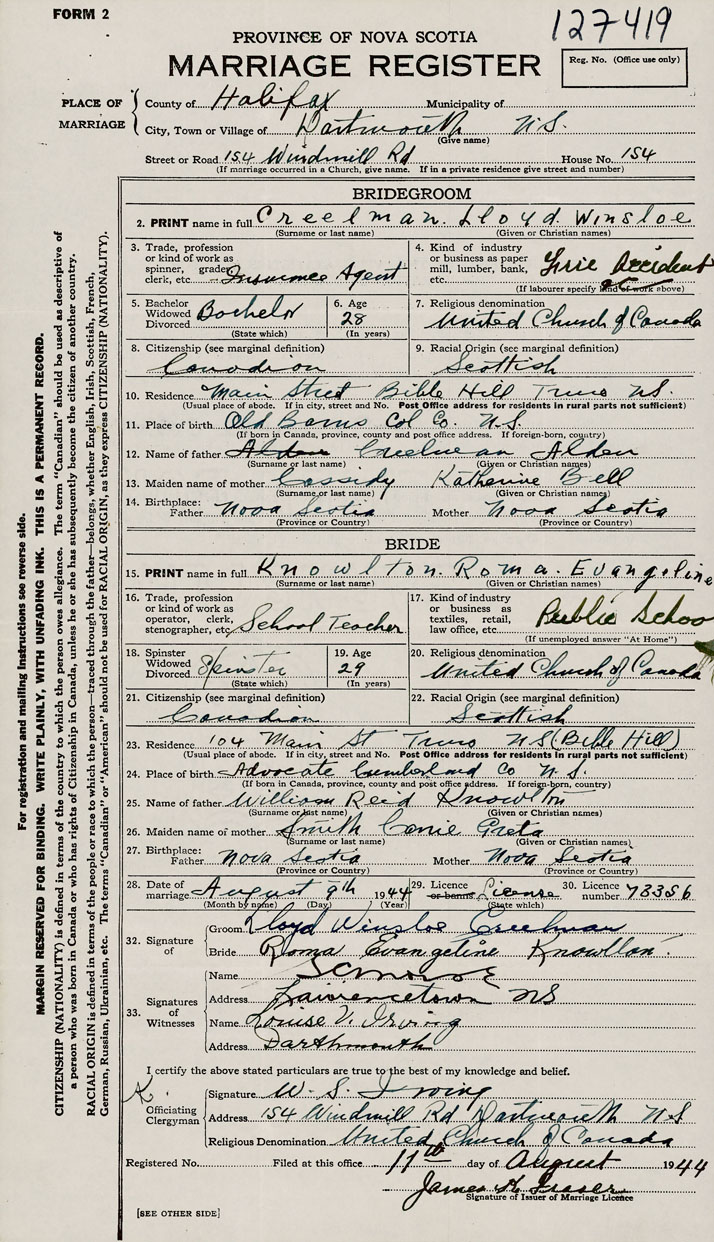 FORM 2
127419
PROVINCE OF NOVA SCOTIA
MARRIAGE REGISTER
Reg. No. (Office use only)
PLACE OF MARRIAGE
County of Halifax Municipality of
City, Town or Village of Dartmouth N.S.
(Give name)
Street or Road 154 Windmill Rd House No. 154
(If marriage occurred in a Church, give name. If in a private residence give street and number)
BRIDEGROOM
2. PRINT name in full Creelman. Lloyd. Winsloe
(Surname or last name) (Given or Christian names)
3. Trade, profession or kind of work as spinner, grader, clerk, etc. Insurance Agent
4. Kind of industry or business as paper mill, lumber, bank, etc. Fire Accident etc
(If labourer specify kind of work above)
5. Bachelor Widowed Divorced Bachelor
(State which)
6. Age 28
(In years)
7. Religious denomination United Church of Canada
8. Citizenship (see marginal definition) Canadian
9. Racial Origin (see marginal definition) Scottish
10. Residence Main Street Bible Hill Truro NS
(Usual place of abode. If in city, street and No. Post Office address for residents in rural parts not sufficient)
11. Place of birth Old Barns Col Co. N.S.
(If born in Canada, province, county and post office address. If foreign-born, country)
12. Name of father Alden Creelman Alden
(Surname or last name) (Given or Christian names)
13. Maiden name of mother Cassidy Katherine Bell
(Surname or last name) (Given or Christian names)
14. Birthplace: Father Nova Scotia Mother Nova Scotia
(Province or Country) (Province or Country)
BRIDE
15. PRINT name in full Knowlton. Roma. Evangeline
(Surname or last name) (Given or Christian names)
16. Trade, profession or kind of work as operator, clerk, stenographer, etc. School Teacher
17. Kind of industry or business as textiles, retail, law office, etc. Public School
(If unemployed answer "At Home")
18. Spinster Widowed Divorced Spinster
(State which)
19. Age 29
(In years)
20. Religious denomination United Church of Canada
21. Citizenship (see marginal definition) Canadian
22. Racial Origin (see marginal definition) Scottish
23. Residence 104 Main St Truro NS (Bible Hill)
(Usual place of abode. If in city, street and No. Post Office address for residents in rural parts not sufficient)
24. Place of birth Advocate Cumberland Co N.S.
(If born in Canada, province, county and post office address. If foreign-born, country)
25. Name of father William Reid Knowlton
(Surname or last name) (Given or Christian names)
26. Maiden name of mother Smith Greta
(Surname or last name) (Given or Christian names)
27. Birthplace: Father Nova Scotia Mother Nova Scotia
(Province or Country) (Province or Country)
28. Date of marriage August 9th 1944
(Month by name) (Day) (Year)
29. Licence or banns License
(State which)
30. Licence number 73356
32. Signature of
Groom Lloyd Winsloe Creelman
Bride Roma Evangeline Knowlton.
33. Signatures of Witnesses
Name
Address Lawrencetown NS
Name Louise V. Irving
Address Darthmouth
I certify the above stated particulars are true to the best of my knowledge and belief.
Officiating Clergyman
Signature W. S. Irving
Address 154 Windmill Rd Dartmouth N.S
Religious Denomination United Church of Canada
Registered No. Filed at this office 11th day of August 1944
James H. Fraser
Signature of Issuer of Marriage Licence
[SEE OTHER SIDE]
For registration and mailing instructions see reverse side.
MARGIN RESERVED FOR BINDING. WRITE PLAINLY, WITH UNFADING INK. THIS IS A PERMANENT RECORD.
CITIZENSHIP (NATIONALITY) is defined in terms of the country to which the person owes allegiance. The term "Canadian" should be used as descriptive of
a person who was born in Canada or who has rights of Citizenship in Canada, unless he or she has subsequently become the citizen of another country.
RACIAL ORIGIN is defined in terms of the people or race to which the person—traced through the father—belongs, whether English, Irish, Scottish, French,
German, Russian, Ukrainian, etc. The terms "Canadian" or "American" should not be used for RACIAL ORIGIN, as they express CITIZENSHIP (NATIONALITY).